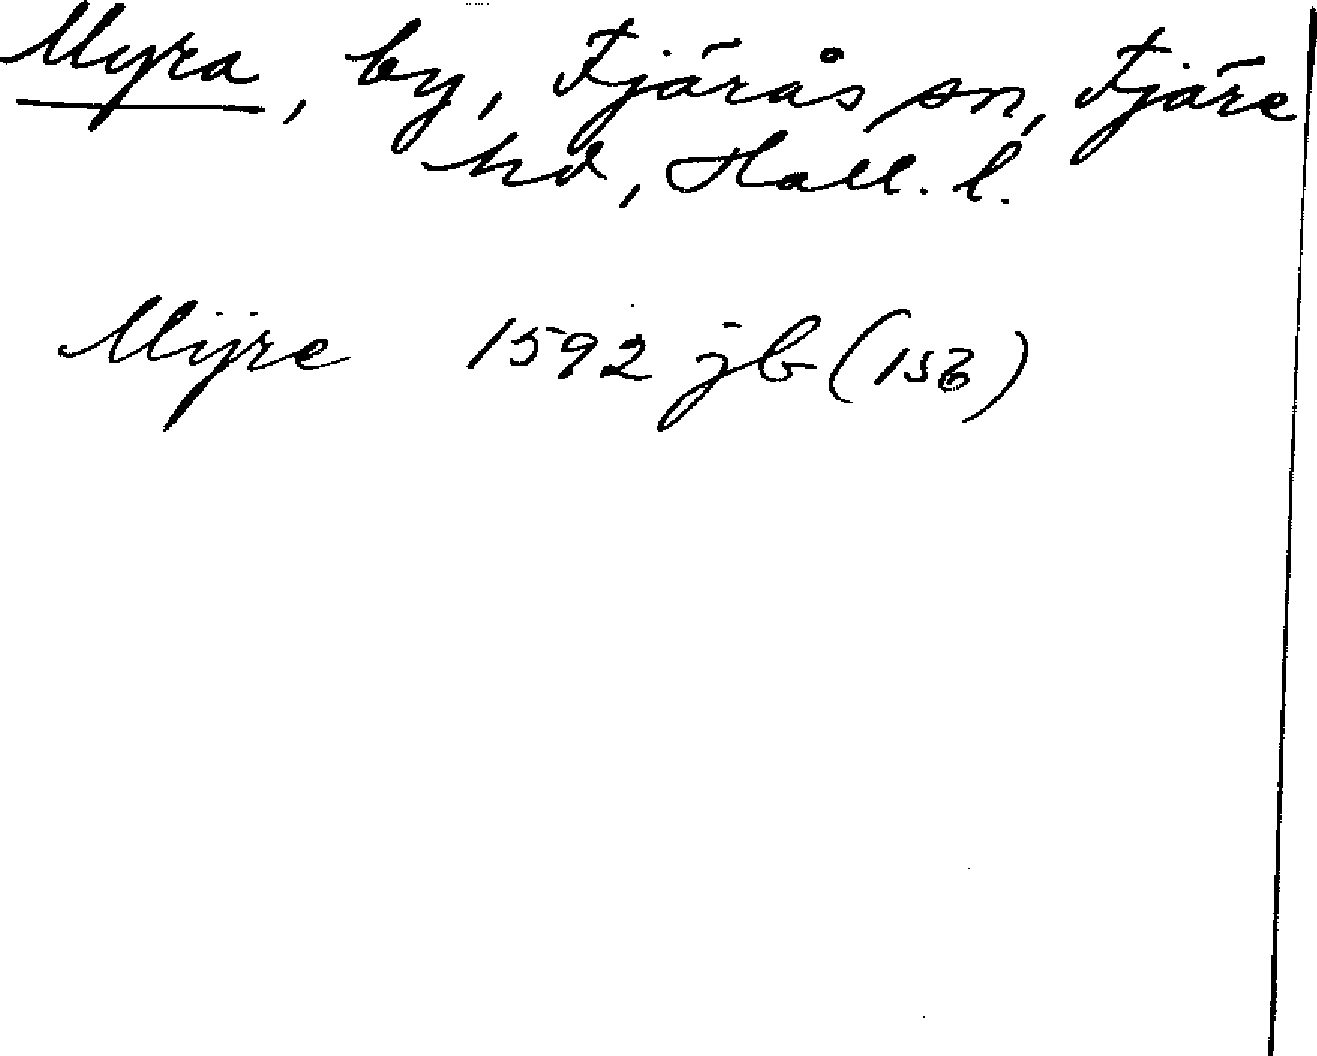 Myra, by, Fjärås sn, Fjäre
hd, Hall. l.
Mÿre 1592 jb (156)